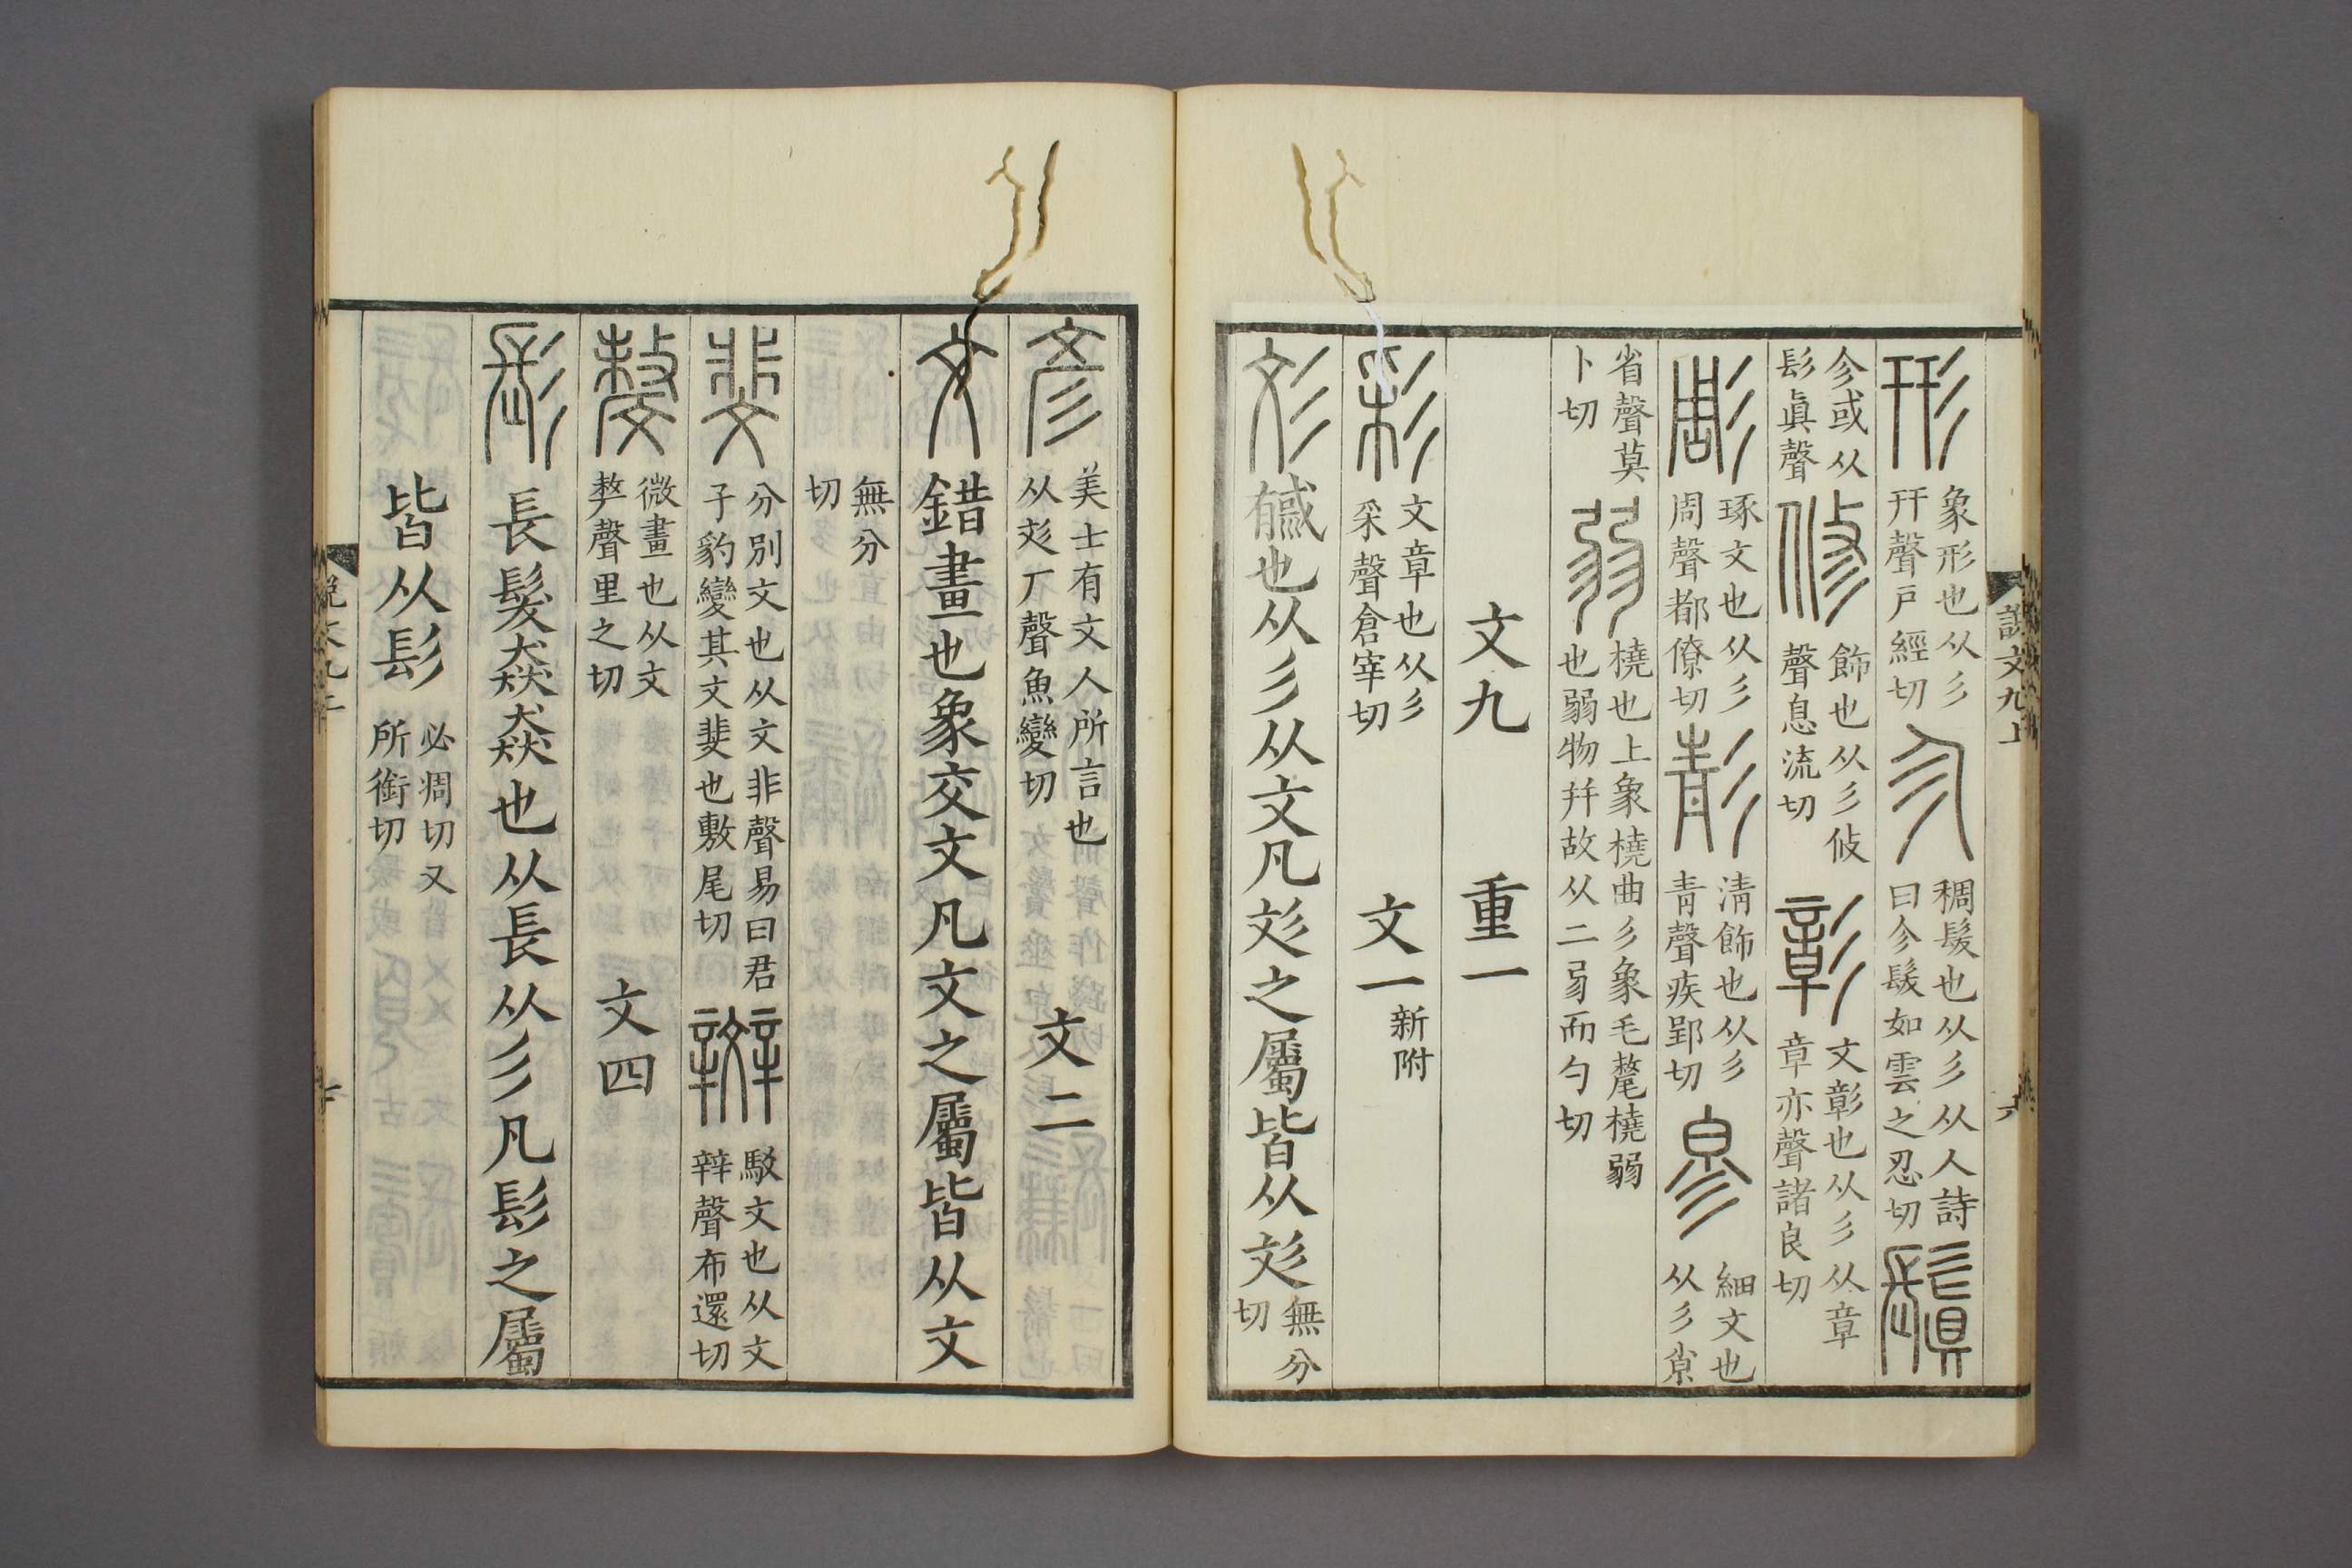 說文九上
六
形 象形也从彡
幵聲戶經切
㐱 稠髮也从彡从人詩
曰㐱髮如雲之忍切
鬒
㐱或从
髟眞聲
修 飾也从彡攸
聲息流切
彰 文彰也从彡从章
章亦聲諸良切
彫 琢文也从彡
周聲都僚切
清飾也从彡
青聲疾郢切
㣎 細文也
从彡𡭴
省聲莫
卜切
弱 橈也上象橈曲彡象毛氂橈弱
也弱物并故从二㢭而勺切
文九 重一
彩 文章也从彡
采聲倉宰切
文一 新附
彣 䰲也从彡从文凡彣之屬皆从彣 無分
切
彥 美士有文人所言也
从彣厂聲魚變切
文二
文 錯畫也象交文凡文之屬皆从文
無分
切
斐 分別文也从文非聲易曰君
子豹變其文斐也敷尾切
辬 駁文也从文
辡聲布還切
斄 微畫也从文
𠩺聲里之切
文四
髟 長髮猋猋也从長从彡凡髟之屬
皆从髟 必凋切又
所銜切